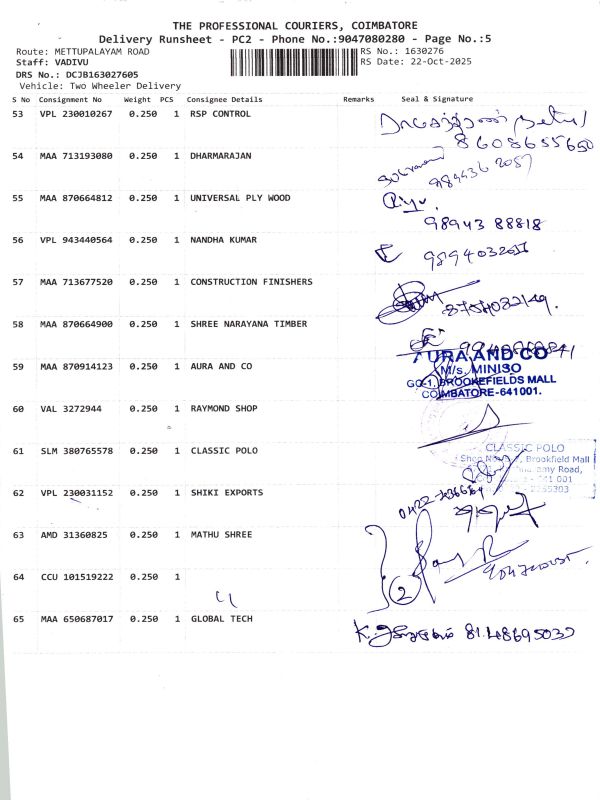 THE PROFESSIONAL COURIERS, COIMBATORE
Delivery Runsheet - PC2 - Phone No.:9047080280 - Page No.:5
Route: METTUPALAYAM ROAD RS No.: 1630276
Staff: VADIVU RS Date: 22-Oct-2025
DRS No.: DCJB163027605
Vehicle: Two Wheeler Delivery
S No Consignment No Weight PCS Consignee Details Remarks Seal & Signature
53 VPL 230010267 0.250 1 RSP CONTROL
8608655650
54 MAA 713193080 0.250 1 DHARMARAJAN
55 MAA 870664812 0.250 1 UNIVERSAL PLY WOOD
98943 88818
56 VPL 943440564 0.250 1 NANDHA KUMAR
57 MAA 713677520 0.250 1 CONSTRUCTION FINISHERS
58 MAA 870664900 0.250 1 SHREE NARAYANA TIMBER
59 MAA 870914123 0.250 1 AURA AND CO
AURA AND CO
M/s. MINISO
GO-1, BROOKEFIELDS MALL
COIMBATORE-641001.
60 VAL 3272944 0.250 1 RAYMOND SHOP
61 SLM 380765578 0.250 1 CLASSIC POLO
CLASSIC POLO
Brookfield Mall
Road,
62 VPL 230031152 0.250 1 SHIKI EXPORTS
63 AMD 31360825 0.250 1 MATHU SHREE
64 CCU 101519222 0.250 1
2
65 MAA 650687017 0.250 1 GLOBAL TECH